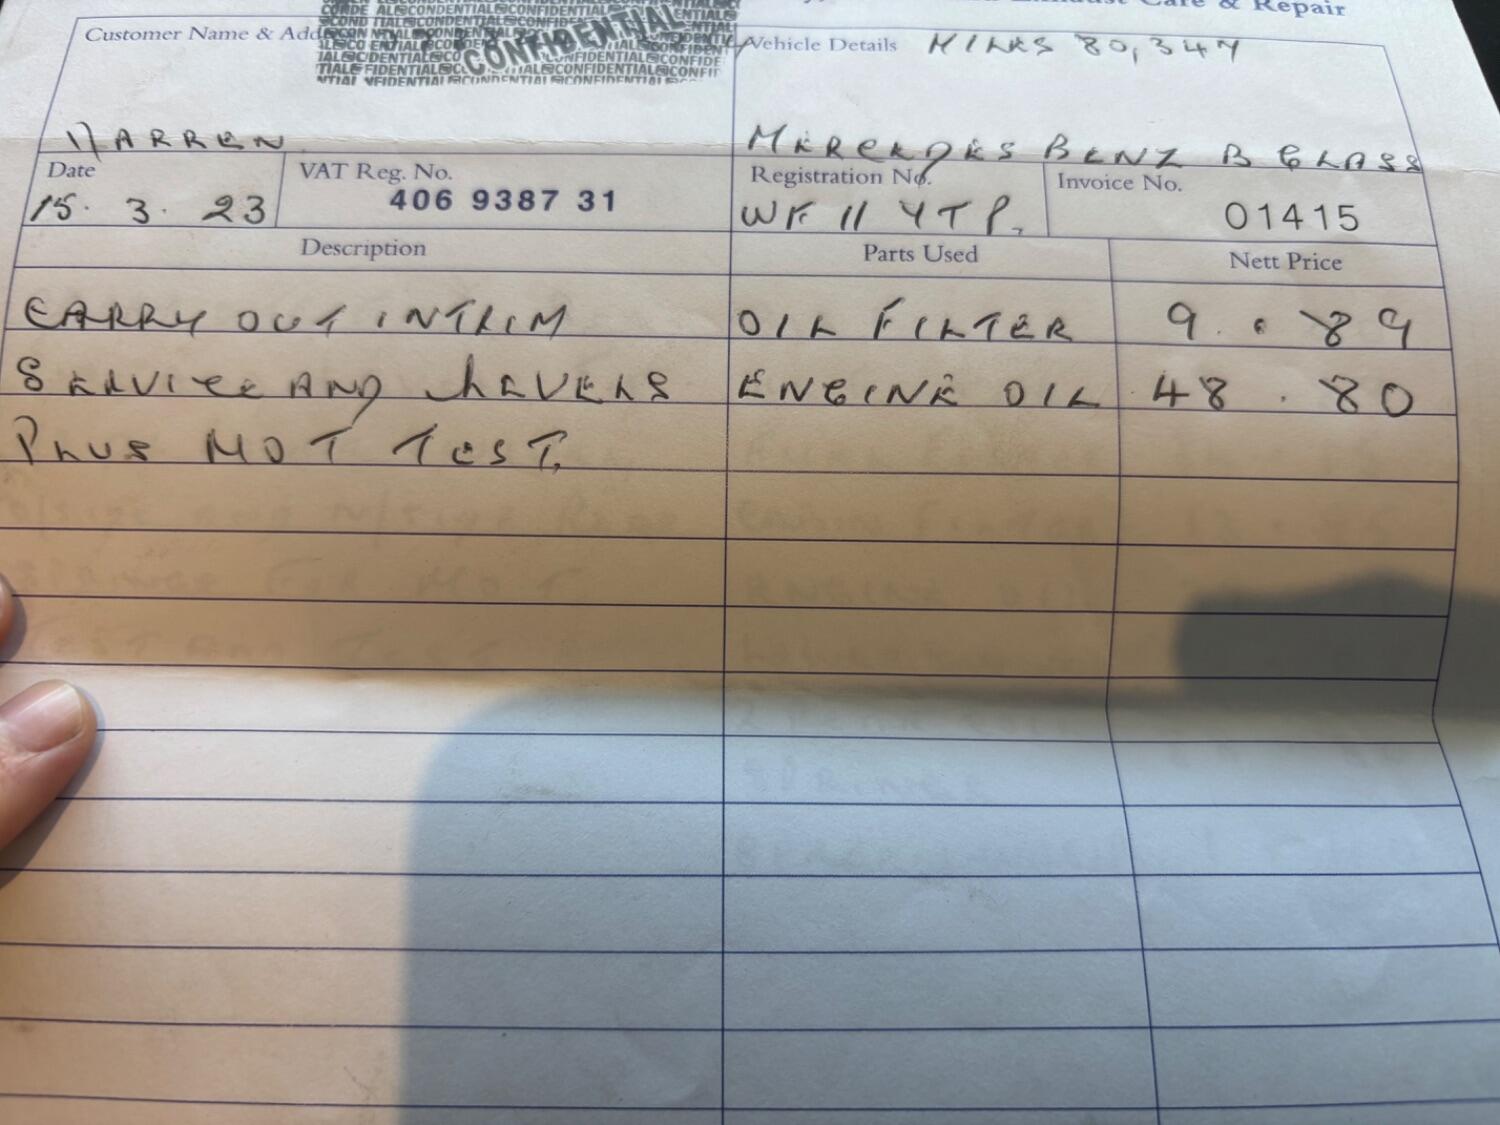 Care & Repair
Customer Name & Add
CONFIDENTIAL
Vehicle Details MILES 80,347
MERCEDES BENZ B CLASS
Date
VAT Reg. No.
Registration No.
Invoice No.
15. 3. 23
406 9387 31
WF11 YTP.
01415
Description
Parts Used
Nett Price
CARRY OUT INTRIM OIL FILTER 9.89
SERVICE AND LEVELS ENGINE OIL 48.80
PLUS MOT TEST.